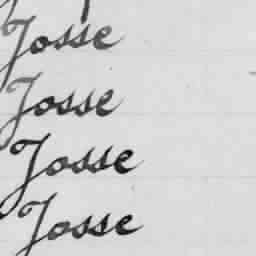 Josse
Josse
Josse
Josse